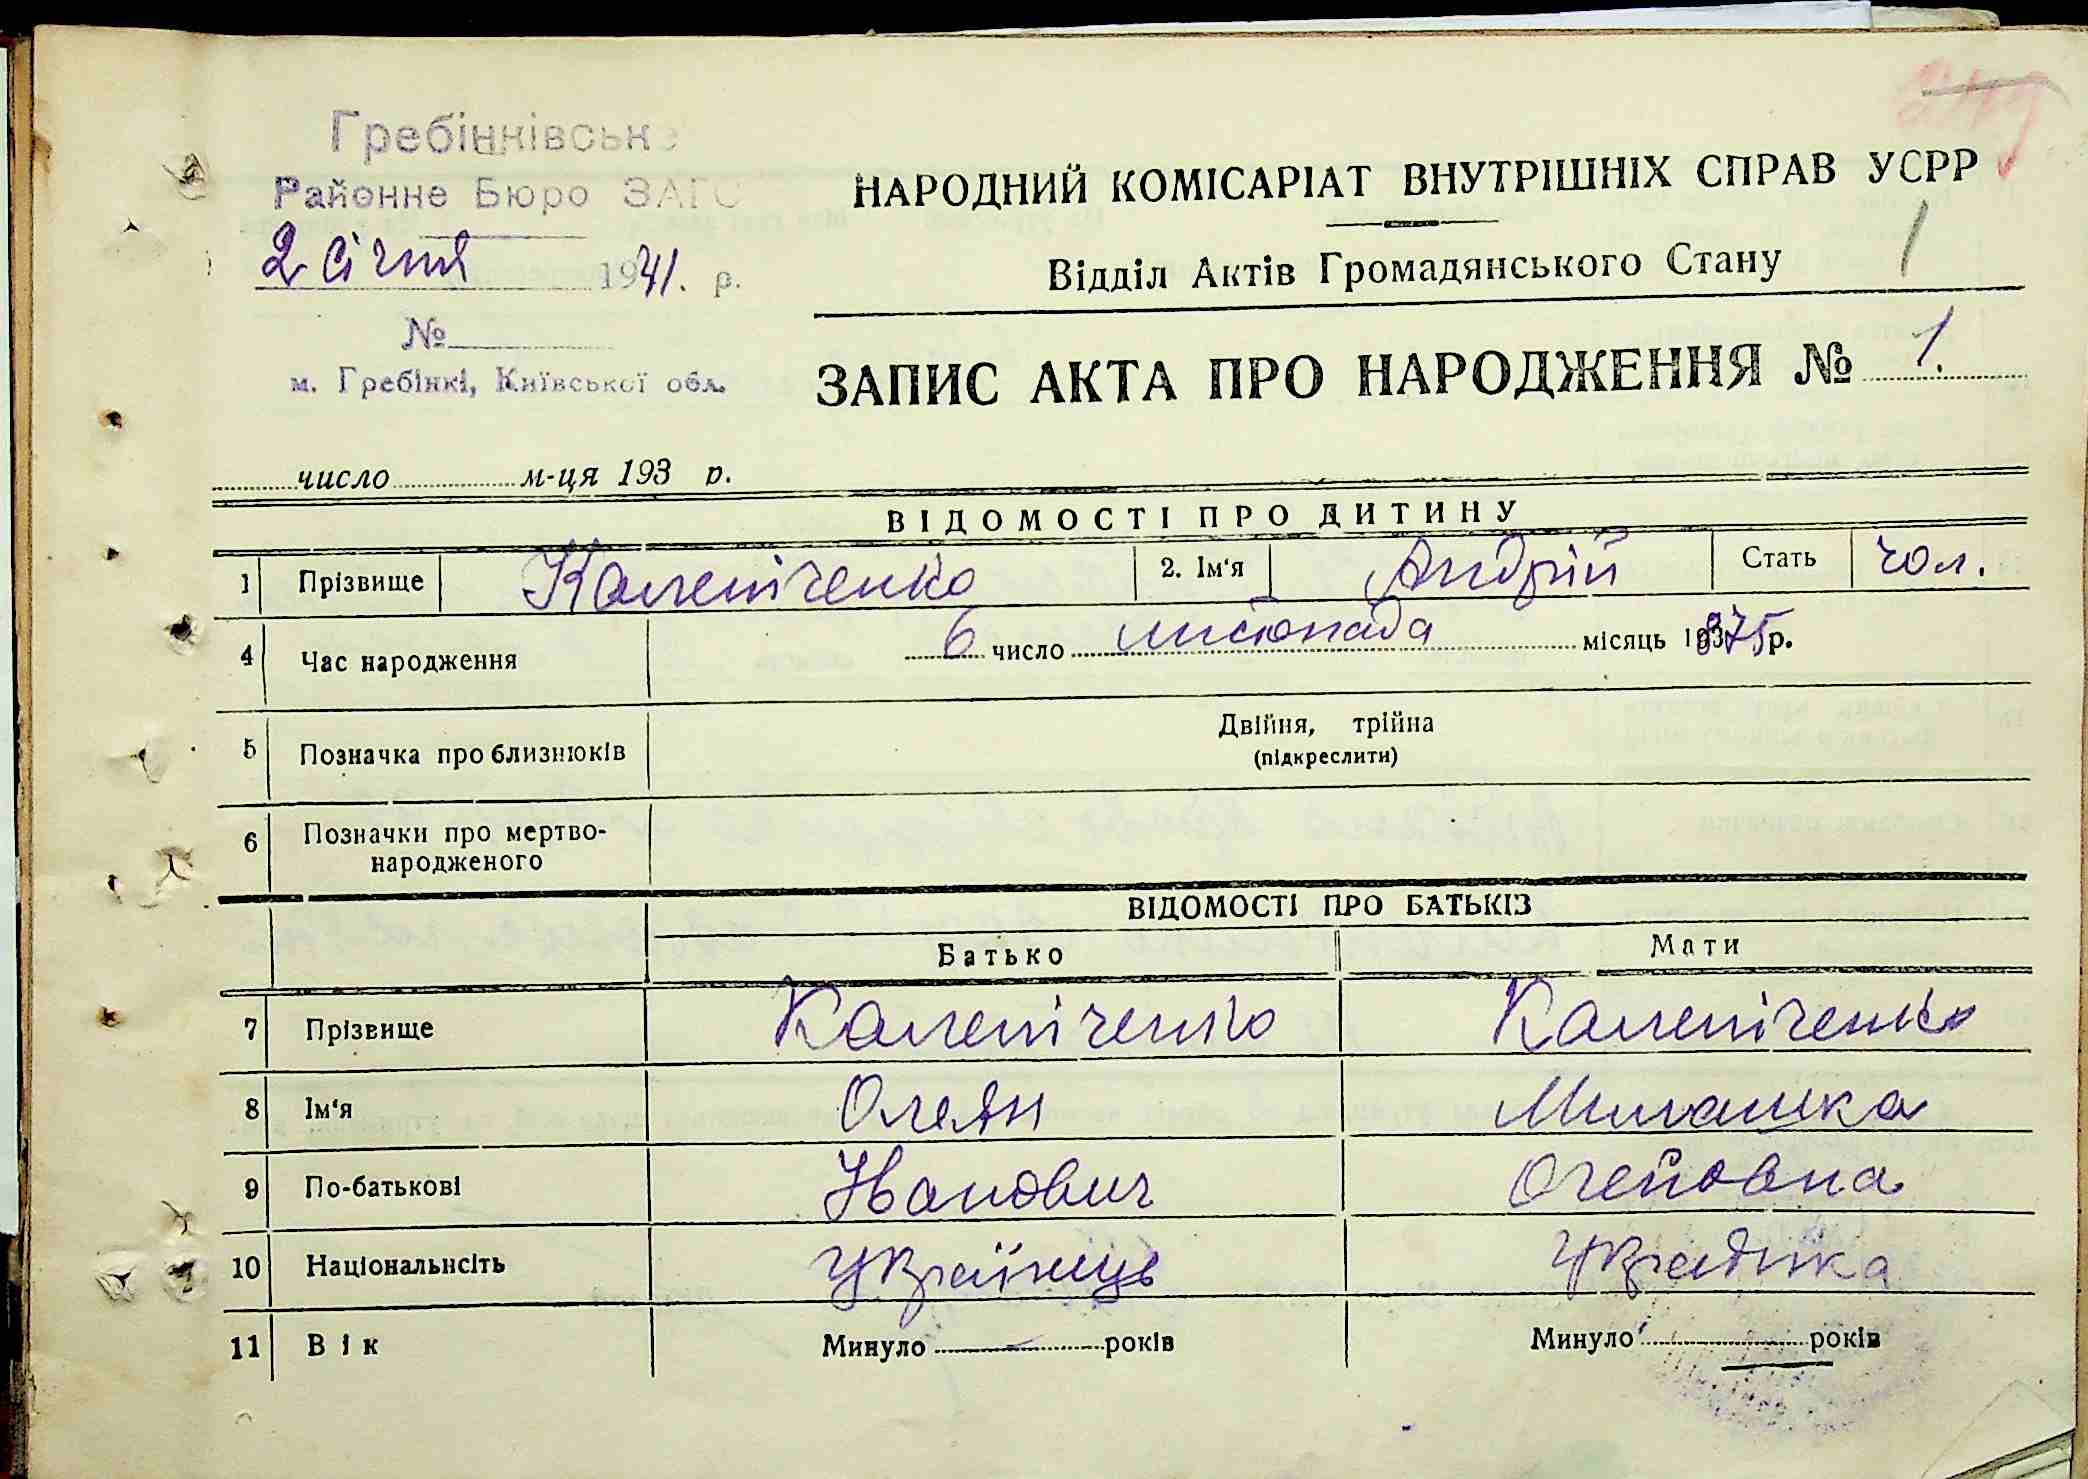 249
Гребінківське
Районне Бюро ЗАГС
2 січня 1941. р.
№
м. Гребінкі, Київської обл.
НАРОДНИЙ КОМІСАРІАТ ВНУТРІШНІХ СПРАВ УСРР
1
Відділ Актів Громадянського Стану
ЗАПИС АКТА ПРО НАРОДЖЕННЯ № 1.
число м-ця 193 р.
ВІДОМОСТІ ПРО ДИТИНУ
1 Прізвище Каленіченко 2. Ім'я Андрій Стать чол.
4 Час народження 6 число листопада місяць 1875 р.
5 Позначка про близнюків Двійня, трійна
(підкреслити)
6 Позначки про мертво-
народженого
ВІДОМОСТІ ПРО БАТЬКІЗ
Батько Мати
7 Прізвище Каленіченко Каленіченко
8 Ім'я Олеян
9 По-батькові Іванович
10 Національнсіть Українець Українка
11 Вік Минуло років Минуло років